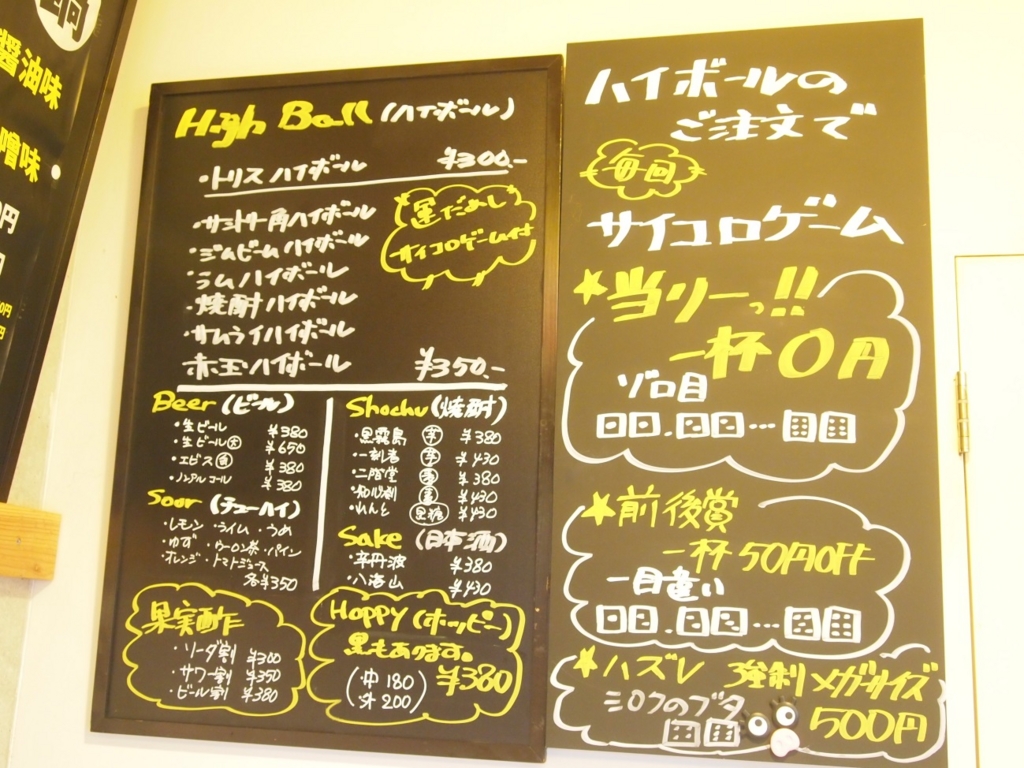 醤油味
噌味
円
High Ball (ハイボール)
・トリスハイボール ¥300.-
・サントリー角ハイボール
・ジムビームハイボール
・ラムハイボール
・焼酎ハイボール
・サムライハイボール
赤玉ハイボール ¥350.-
運だめし
サイコロゲーム付
Beer (ビール)
・生ビール ¥380
・生ビール大 ¥650
・エビス ¥380
・ノンアルコール ¥380
Soor (チューハイ)
・レモン ・ライム ・うめ
・ゆず ・ウーロン茶 ・パイン
・オレンジ ・トマトジュース
各¥350
Shochu (焼酎)
・黒霧島 芋 ¥380
・一刻者 芋 ¥430
・二階堂 麦 ¥380
¥430
・れんと 黒糖 ¥430
Sake (日本酒)
・辛丹波 ¥380
・八海山 ¥430
果実酢
・ソーダ割 ¥300
・サワー割 ¥350
・ビール割 ¥380
HOPPY (ホッピー)
黒もあります。
(中 180 ¥380
外 200)
ハイボールの
ご注文で
毎回
サイコロゲーム
★当りーっ!!
一杯0円
ゾロ目
★前後賞
一杯50円OFF
一目違い
★ハズレ 強制メガサイズ
ミロクのブタ 500円